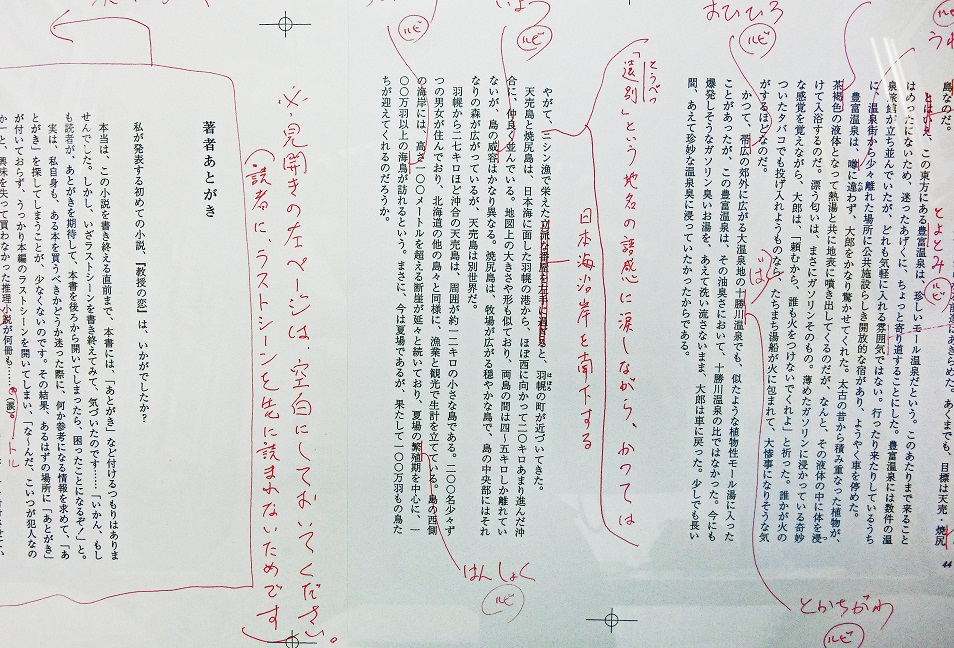 島なのだ。
とはいえ、この東方にある豊富温泉は、珍しいモール温泉だという。このあたりまで来ること
はめったにないため、迷ったあげくに、ちょっと寄り道することにした。豊富温泉には数件の温
泉旅館が立ち並んでいたが、どれも気軽に入れる雰囲気ではない。行ったり来たりしているうち
に、温泉街から少々離れた場所に公共施設らしき開放的な宿があり、ようやく車を停めた。
豊富温泉は、噂に違わず、大郎をかなり驚かせてくれた。太古の昔から積み重なった植物が、
茶褐色の液体となって熱湯と共に地表に噴き出してくるのだが、なんと、その液体の中に体を浸
けて入浴するのだ。漂う匂いは、まさにガソリンそのもの。薄めたガソリンに浸かっている奇妙
な感覚を覚えながら、大郎は、「頼むから、誰も火をつけないでくれよ」と祈った。誰かが火の
ついたタバコでも投げ入れようものなら、たちまち湯船が火に包まれて、大惨事になりそうな気
がするほどなのだ。
かつて、帯広の郊外に広がる大温泉地の十勝川温泉でも、似たような植物性モール湯に入った
ことがあったが、この豊富温泉は、その油臭さにおいて、十勝川温泉の比ではなかった。今にも
爆発しそうなガソリン臭いお湯を、あえて洗い流さないまま、大郎は車に戻った。少しでも長い
間、あえて珍妙な温泉臭に浸っていたかったからである。
とよとみ
ルビ
おびひろ
ルビ
ば
とかちがわ
ルビ
44
とうべつ
「遠別」という地名の語感に涙しながら、かつては
日本海沿岸を南下する
やがて、三シン漁で栄えた立派な番屋を左手に過ぎると、羽幌の町が近づいてきた。
はぼろ
天売島と焼尻島は、日本海に面した羽幌の港から、ほぼ西に向かって二〇キロあまり進んだ沖
合に、仲良く並んでいる。地図上の大きさや形も似ており、両島の間は四〜五キロしか離れてい
ないが、島の威容はかなり異なる。焼尻島は、牧場が広がる穏やかな島で、島の中央部にはそれ
なりの森が広がっているが、天売島は別世界だ。
羽幌から二七キロほど沖合の天売島は、周囲が約一二キロの小さな島である。三〇〇名少々ず
つの男女が住んでおり、北海道の他の島々と同様に、漁業と観光で生計を立てている。島の西側
の海岸には、高さ一〇〇メートルを超える断崖が延々と続いており、夏場の繁殖期を中心に、一
〇〇万羽以上の海鳥が訪れるという。まさに、今は夏場であるが、果たして一〇〇万羽もの鳥た
ちが迎えてくれるのだろうか。
ルビ
ルビ
はんしょく
ルビ
※見開きの左ページは、空白にしておいてください。
(読者に、ラストシーンを先に読まれないためです)
著者あとがき
私が発表する初めての小説、『教授の恋』は、いかがでしたか？
本当は、この小説を書き終える直前まで、本書には、「あとがき」など付けるつもりはありま
せんでした。しかし、いざラストシーンを書き終えてみて、気づいたのです……「いかん、もし
も読者が、あとがきを期待して、本書を後ろから開いてしまったら、困ったことになるぞ」と。
実は、私自身も、ある本を買うべきかどうか迷った際に、何か参考になる情報を求めて、「あ
とがき」を探してしまうことが、少なくないのです。その結果、あるはずの場所に「あとがき」
が付いておらず、うっかり本編のラストシーンを開いてしまい、「な〜んだ、こいつが犯人なの
か」と、興味を失って買わなかった推理小説が何冊も……（涙）。
トル